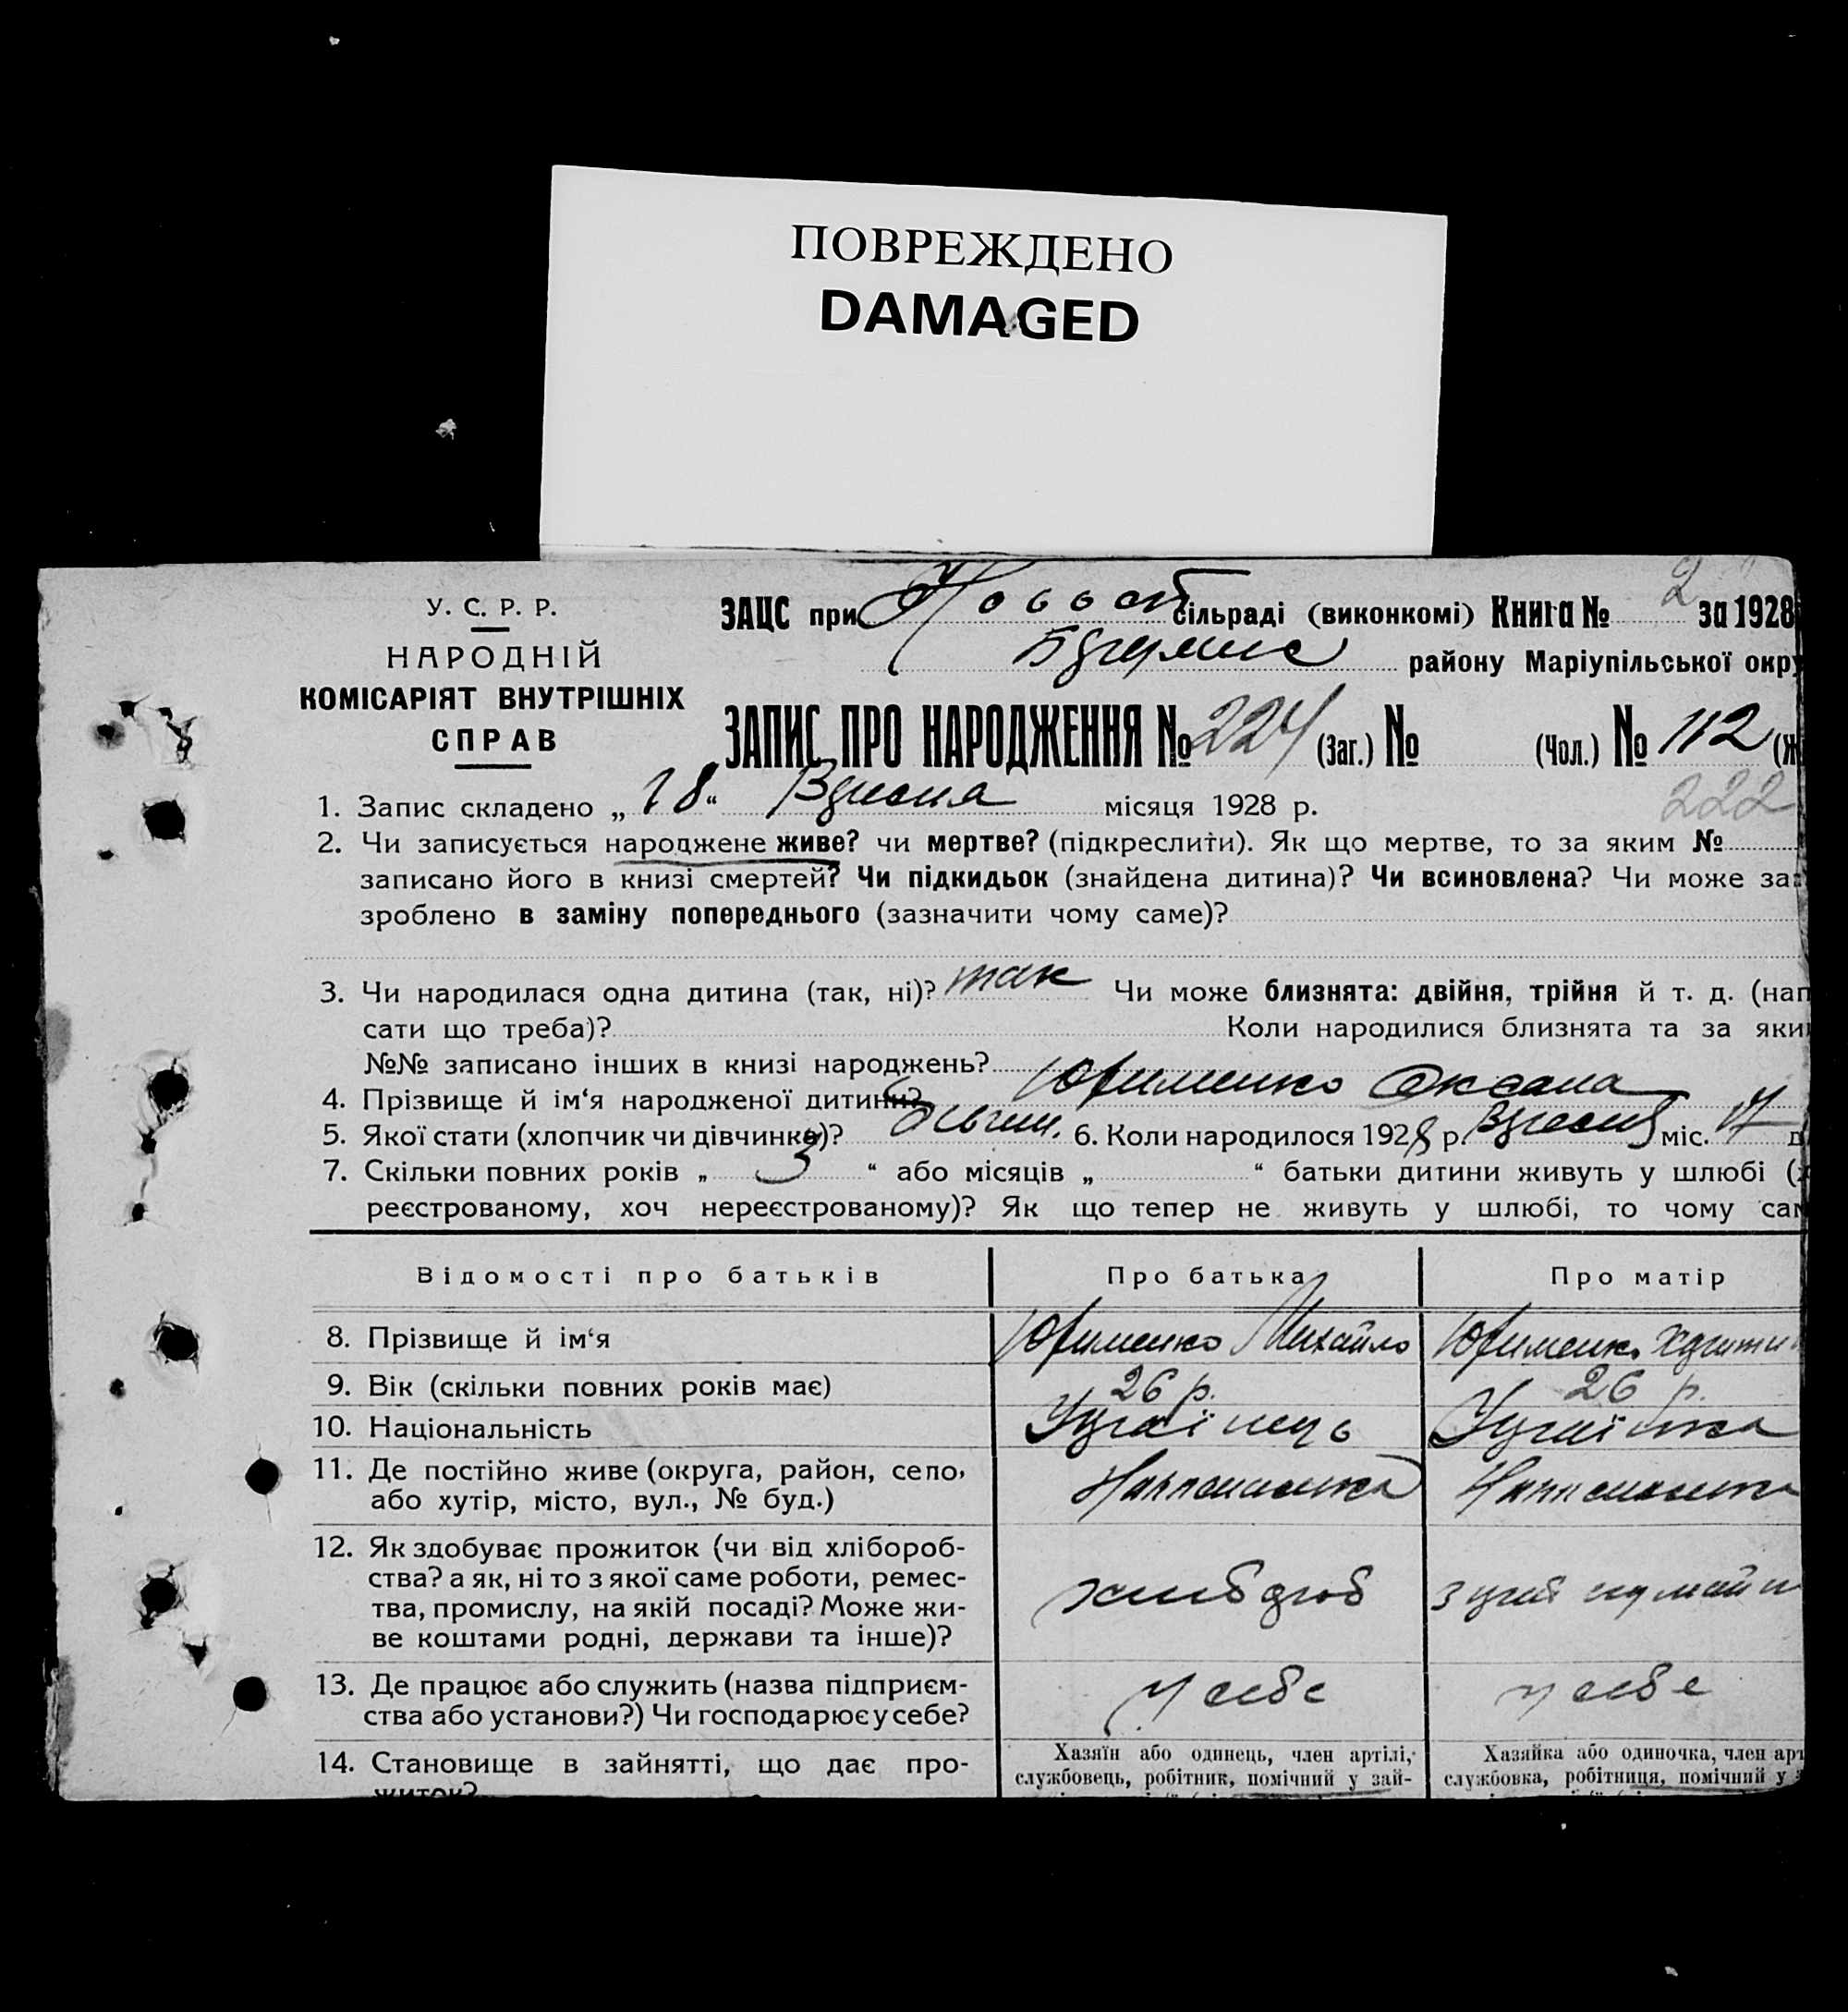 ПОВРЕЖДЕНО
DAMAGED
У. С. Р. Р.
НАРОДНІЙ
КОМІСАРІЯТ ВНУТРІШНІХ
СПРАВ
ЗАЦС при сільраді (виконкомі) Книга № 2 за 1928
району Маріупільської окру
ЗАПИС ПРО НАРОДЖЕННЯ № 224 (Заг.) № (Чол.) № 112 (Ж
222
1. Запис складено „18“ Вересня місяця 1928 р.
2. Чи записується народжене живе? чи мертве? (підкреслити). Як що мертве, то за яким №
записано його в книзі смертей? Чи підкидьок (знайдена дитина)? Чи всиновлена? Чи може за
зроблено в заміну попереднього (зазначити чому саме)?
3. Чи народилася одна дитина (так, ні)? так Чи може близнята: двійня, трійня й т. д. (нап
сати що треба)? Коли народилися близнята та за яки
№№ записано інших в книзі народжень?
4. Прізвище й ім‘я народженої дитини? Юхименко Оксана
5. Якої стати (хлопчик чи дівчинка)? 6. Коли народилося 1928 р. Вересня міс. 17 д
7. Скільки повних років „ 3 “ або місяців „ “ батьки дитини живуть у шлюбі (х
реєстрованому, хоч нереєстрованому)? Як що тепер не живуть у шлюбі, то чому сам
Відомості про батьків Про батька Про матір
8. Прізвище й ім‘я Юхименко Михайло Юхименко
9. Вік (скільки повних років має) 26 р. 26 р.
10. Національність Українець Українка
11. Де постійно живе (округа, район, село,
або хутір, місто, вул., № буд.)
12. Як здобуває прожиток (чи від хлібороб-
ства? а як, ні то з якої саме роботи, ремес-
тва, промислу, на якій посаді? Може жи-
ве коштами родні, держави та інше)?
хлібороб
13. Де працює або служить (назва підприєм-
ства або установи?) Чи господарює у себе?
у себе у себе
14. Становище в зайнятті, що дає про-
житок?
Хазяїн або одинець, член артілі,
службовець, робітник, помічний у зай-
Хазяйка або одиночка, член арт
службовка, робітниця, помічний у з